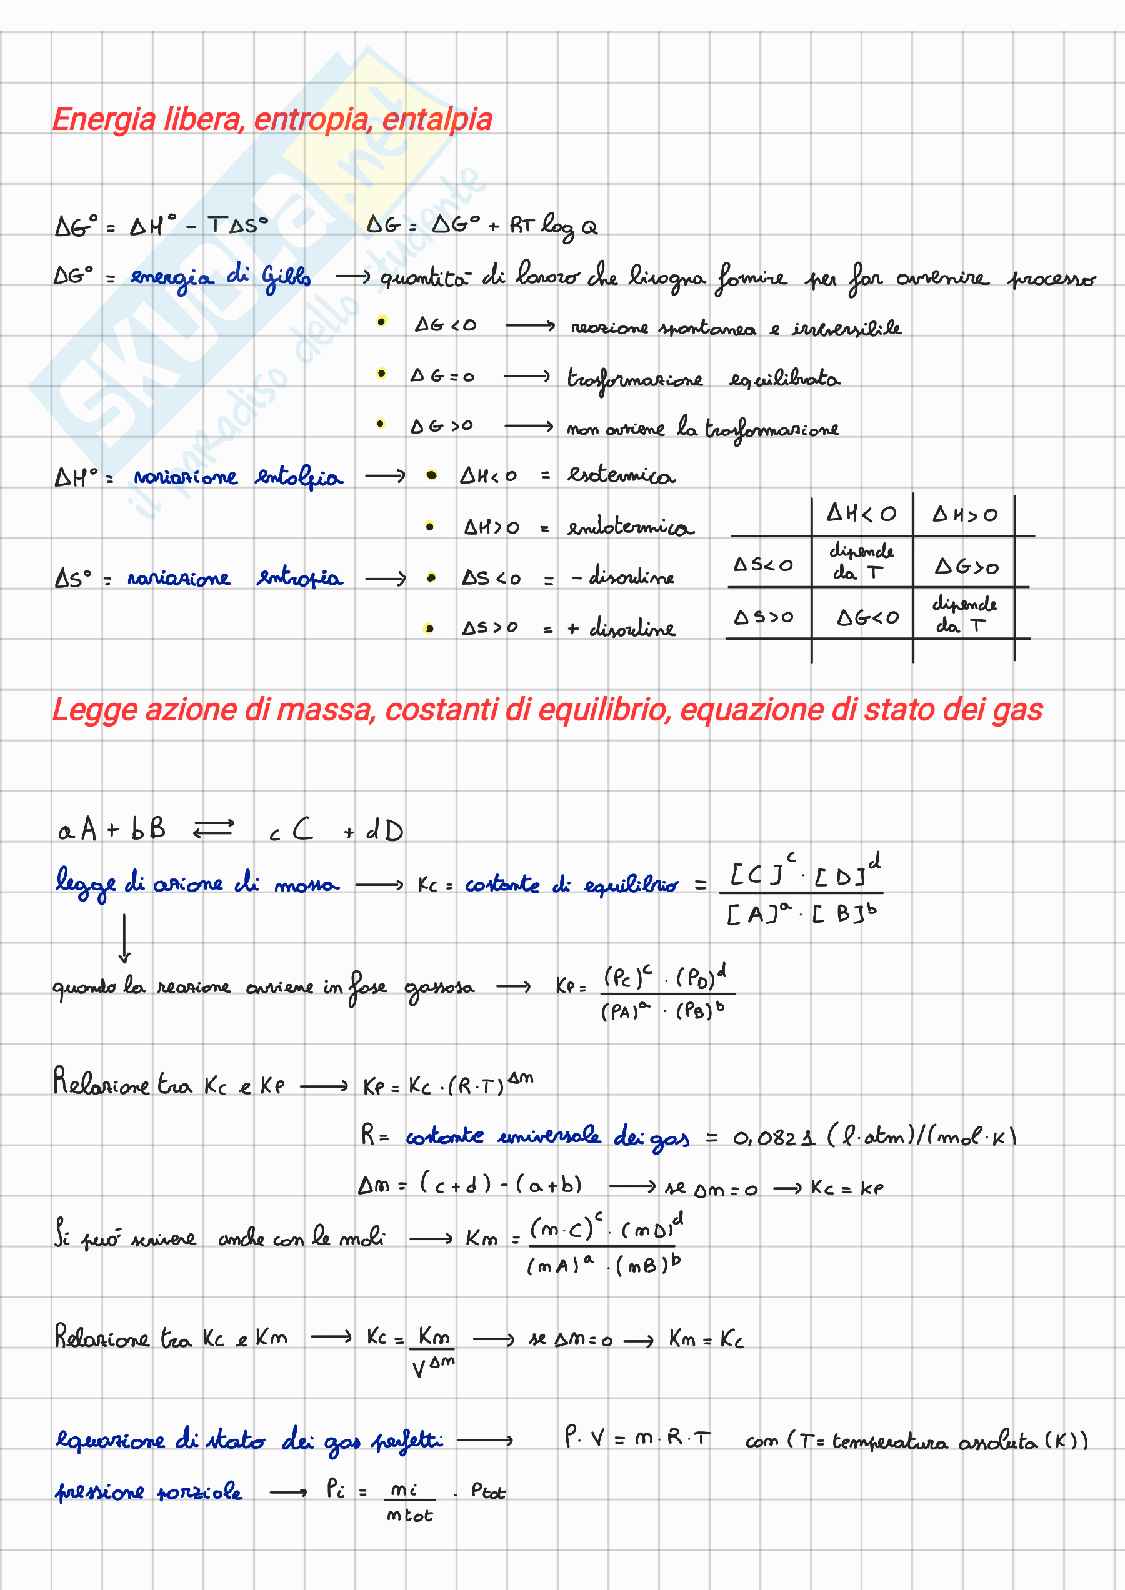 Energia libera, entropia, entalpia
ΔG° = ΔH° - TΔS° ΔG = ΔG° + RT log Q
ΔG° = energia di Gibbs → quantità di lavoro che bisogna fornire per far avvenire processo
• ΔG<0 → reazione spontanea e irreversibile
• ΔG=0 → trasformazione equilibrata
• ΔG>0 → non avviene la trasformazione
ΔH° = variazione entalpia → • ΔH<0 = esotermica
• ΔH>0 = endotermica
ΔS° = variazione entropia → • ΔS<0 = - disordine
• ΔS>0 = + disordine
ΔH<0 ΔH>0
ΔS<0 dipende da T ΔG>0
ΔS>0 ΔG<0 dipende da T
Legge azione di massa, costanti di equilibrio, equazione di stato dei gas
aA + bB ⇄ cC + dD
legge di azione di massa → Kc = costante di equilibrio = [C]^c · [D]^d / [A]^a · [B]^b
↓
quando la reazione avviene in fase gassosa → Kp = (PC)^c · (PD)^d / (PA)^a · (PB)^b
Relazione tra Kc e Kp → Kp = Kc · (R·T)^Δn
R = costante universale dei gas = 0,0821 (l·atm)/(mol·K)
Δn = (c+d) - (a+b) → se Δn=0 → Kc = Kp
Si può scrivere anche con le moli → Kn = (n·C)^c · (nD)^d / (nA)^a · (nB)^b
Relazione tra Kc e Kn → Kc = Kn / V^Δn → se Δn=0 → Kn = Kc
equazione di stato dei gas perfetti → P·V = n·R·T con (T= temperatura assoluta (K))
pressione parziale → Pi = ni / ntot · Ptot
SKUOLA.net
il paradiso dello studente